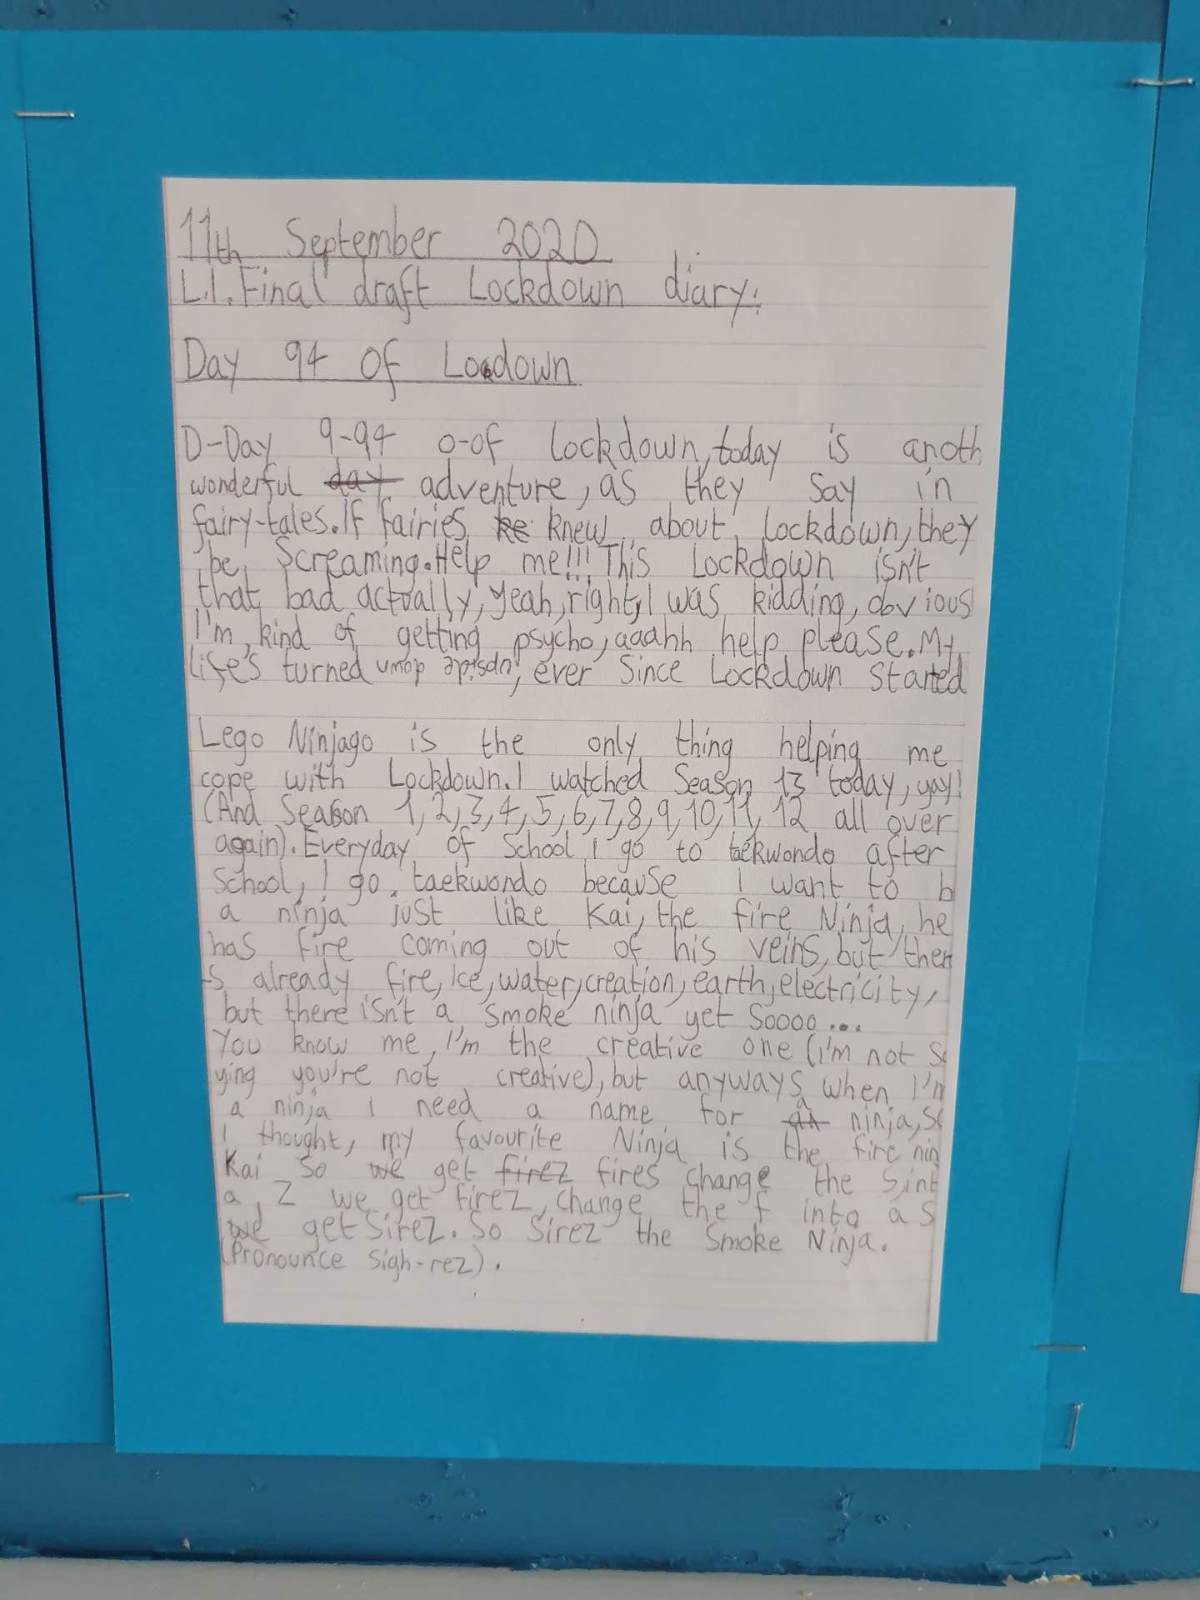 11th September 2020
L.I. Final draft Lockdown diary:
Day 94 of Lockdown
D-Day 9-94 o-of lockdown, today is anoth
wonderful day adventure, as they say in
fairy-tales. If fairies ke knew about lockdown, they
be screaming. Help me!!! This Lockdown isn't
that bad actually, yeah, right, I was kidding, obvious
I'm kind of getting psycho, aaahh help please. My
life's turned upside down, ever since Lockdown started
Lego Ninjago is the only thing helping me
cope with Lockdown. I watched Season 13 today, yay!
(And Season 1, 2, 3, 4, 5, 6, 7, 8, 9, 10, 11, 12 all over
again). Everyday of school I go to taekwondo after
school, I go taekwondo because I want to b
a ninja just like Kai, the fire Ninja, he
has fire coming out of his veins, but ther
s already fire, Ice, water, creation, earth, electricity,
but there isn't a smoke ninja yet soooo...
You know me, I'm the creative one (i'm not s
ying you're not creative), but anyways when I'm
a ninja I need a name for an a ninja, so
I thought, my favourite Ninja is the fire nin
Kai so we get firez fires change the s int
a, Z we get firez, change the f into a s
we get Sirez. So Sirez the Smoke Ninja.
(Pronounce sigh-rez).